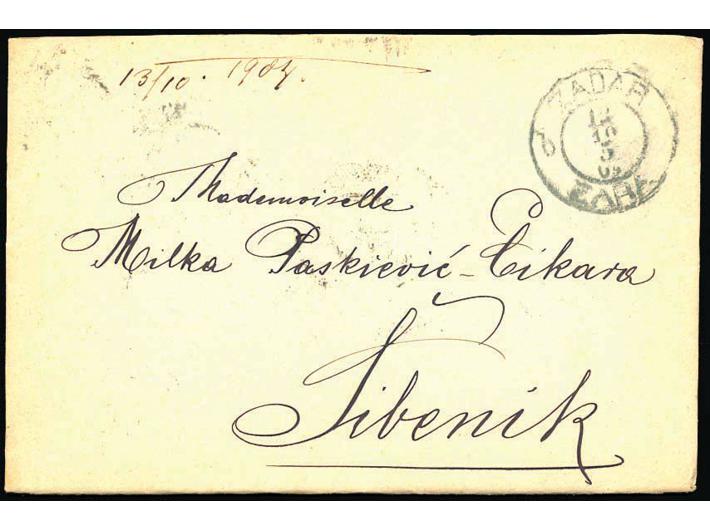 13/10. 1904.
ZADAR
12
10
5
ZARA
Mademoiselle
Milka Paskiević-Čikara
Šibenik